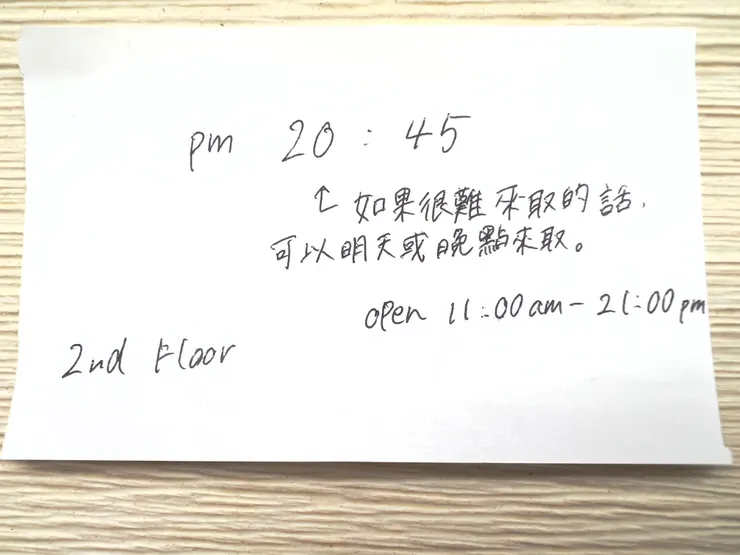 pm 20:45
↑如果很難來取的話,
可以明天或晚點來取。
open 11:00am-21:00pm
2nd Floor